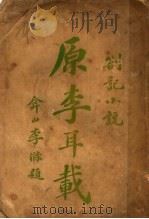 研狗
劄記小說
原李耳載
山李題